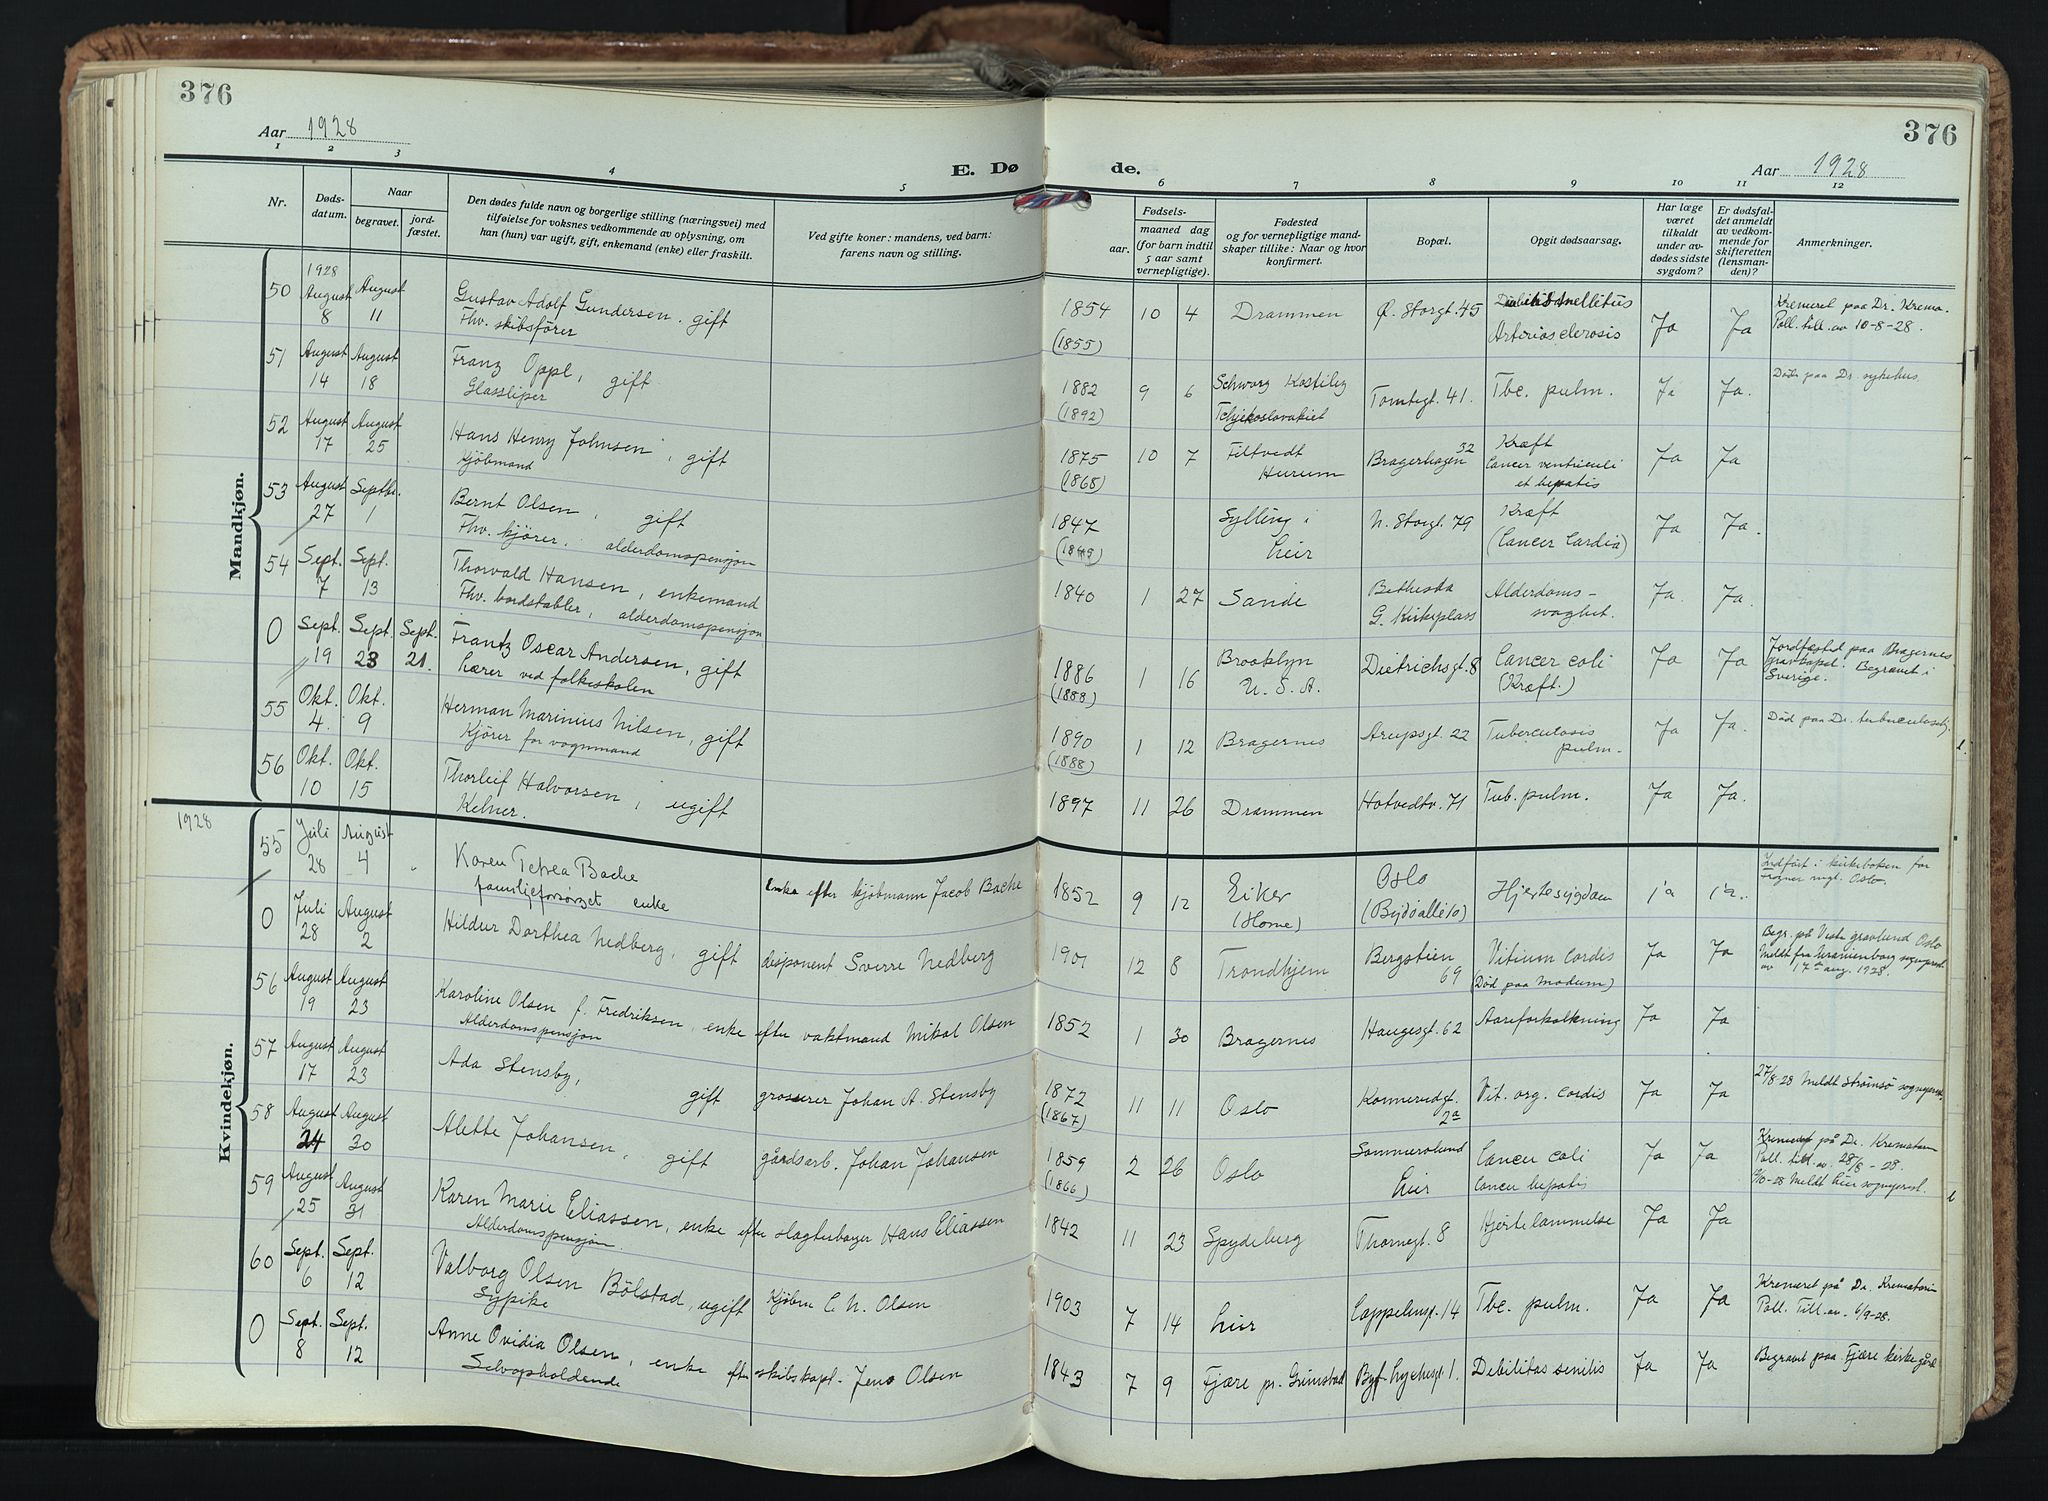 376
Aar 1928
1 2 3 4 5
E. Dø
Nr.
Døds-
datum.
Naar
begravet.
jord-
fæstet.
Den dødes fulde navn og borgerlige stilling (næringsvei) med
tilføielse for voksnes vedkommende av oplysning, om
han (hun) var ugift, gift, enkemand (enke) eller fraskilt.
Ved gifte koner: mandens, ved barn:
farens navn og stilling.
Mandkjøn.
50 1928 August 8 August 11 Gustav Adolf Gundersen. gift
Fhv. skibsfører
51 August 14 August 18 Franz Oppl, gift
Glassliper
52 August 17 August 25 Hans Henry Johnsen, gift
Kjöbmand
53 August 27 Septbr. 1 Bernt Olsen, gift
Fhv. kjörer. alderdomspensjon
54 Sept. 7 Sept. 13 Thorvald Hansen, enkemand
Fhv. bordstabler, alderdomspensjon
0 Sept. 19 Sept. 23 Sept. 21. Frantz Oscar Andersen, gift
Lærer ved folkeskolen
55 Okt. 4 Okt. 9 Herman Marinius Nilsen, gift
Kjörer for vognmand
56 Okt. 10 Okt. 15 Thorleif Halvorsen, ugift
Kelner.
1928
Kvindekjøn.
55 Juli 28 August 4 Karen Petrea Bache
familjeforsörget enke
Enke efter kjöbmann Jacob Bache
0 Juli 28 August 2 Hildur Dorthea Nedberg, gift disponent Sverre Nedberg
56 August 19 August 23 Karoline Olsen f. Fredriksen, enke efter vaktmand Mikal Olsen
Alderdomspensjon
57 August 17 August 23 Ada Stensby, gift grosserer Johan A. Stensby
58 August 24 August 30 Alette Johansen, gift gårdsarb. Johan Johansen
59 August 25 August 31 Karen Marie Eliassen, enke efter slagterborger Hans Eliassen
Alderdomspensjon.
60 Sept. 6 Sept. 12 Valborg Olsen Bölstad, ugift Kjöbm C. N. Olsen
Sypike
0 Sept. 8 Sept. 12 Anne Ovidia Olsen, enke eft skibskapt. Jens Olsen
Selvopholdende
376
de.
Aar 1928
6 7 8 9 10 11 12
Fødsels-
aar.
maaned dag
(for barn indtil
5 aar samt
vernepligtige).
Fødested
og for vernepligtige mand-
skaper tillike: Naar og hvor
konfirmert.
Bopæl.
Opgit dødsaarsag.
Har læge
været
tilkaldt
under av-
dødes sidste
sygdom?
Er dødsfal-
det anmeldt
av vedkom-
mende for
skifteretten
(lensman-
den)?
Anmerkninger.
1854 (1855) 10 4 Drammen Ø. Storgt. 45 Diabetes mellitus
Arteriosclerosis Ja Ja Kremeret paa Dr. Krema.
Poll. till. av 10-8-28.
1882 (1892) 9 6 Schwarz Kostiley
Tchjekoslovakiet Tomtegt. 41. Tbc. pulm. Ja Ja. Död paa Dr. sykehus
1875 (1868) 10 7 Filtvedt
Hurum Bragerhagen 32 Kræft
Cancer ventriculi
et hepatis Ja Ja
1847 Sylling i
Lier N. Storgt. 79 Kræft
(Cancer Cardia) Ja Ja.
1840 1 27 Sande Bethesda
G. Kirkeplass Alderdoms-
svaghet. Ja. Ja.
1886 (1888) 1 16 Brooklyn
U. S. A. Dietrichsgt. 8 Cancer coli
(Kræft.) Ja Ja Jordfæstid paa Bragernes
gravkapel. Begravet i
Sverige.
1890 (1888) 1 12 Bragernes Arupsgt. 22 Tuberculosis
pulm. Ja Ja. Död paa Dr. tuberculosehj.
1897 11 26 Drammen Hotvedtv. 71 Tub. pulm. Ja Ja.
1852 9 12 Eiker
(Horne) Oslo
(Bydöallé 10) Hjertesygdom ja ja. Indfört i kirkeboken for
Frogner mgt. Oslo.
1901 12 8 Trondhjem Bergstien
69 Vitium cordis
(Död paa Modum) Ja Ja Begr. på Vestre gravlund Oslo
Meldt fra Uranienborg sogneprest
av 17de aug. 1928.
1852 1 30 Bragernes Haugesgt. 62 Aareforkalkning Ja Ja
1872 (1867) 11 11 Oslo Konnerudgt.
2a Vit. org. cordis Ja Ja 27/8-28 Meldt Strömsö sogneprest
1859 (1866) 2 26 Oslo
Lier Cancer coli
Cancer hepatis Ja Ja Kremeret på Dr. Krematorium
Poll. till. av. 28/8-28.
Meldt Lier sogneprest.
1842 11 23 Spydeberg Thornegt. 8 Hjertelammelse Ja Ja
1903 7 14 Lier Cappelensgt. 14 Tbc. pulm. Ja Ja Kremeret på Dr. Krematorium
Poll. Till. av. 6/9-28.
1843 7 9 Fjære pr. Grimstad Bgf. Lychesgt 1. Debilitas senilis Ja Ja Begravet paa Fjære kirkegård